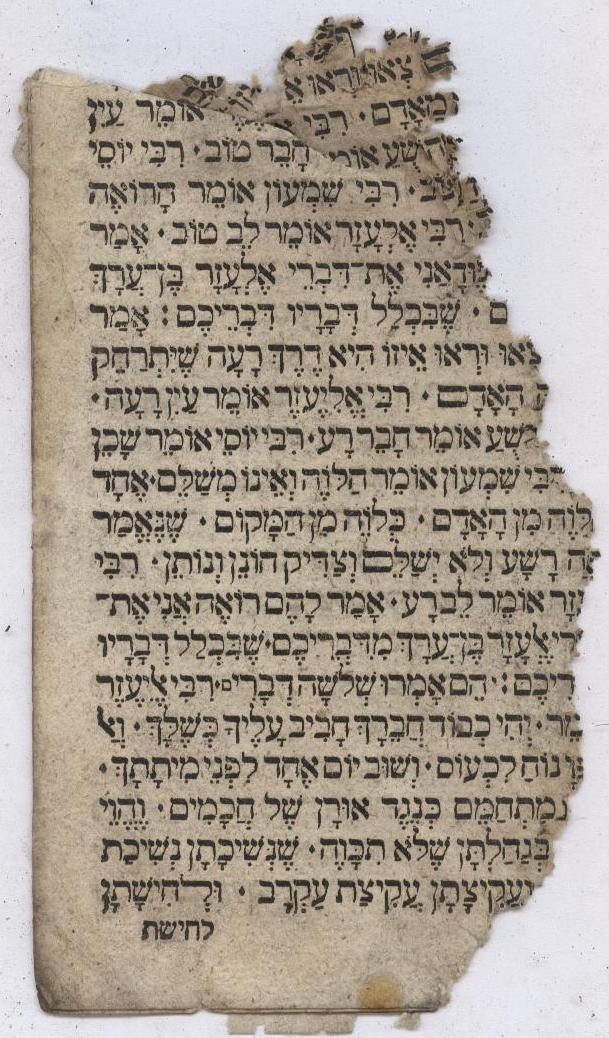 צאו וראו א
מֵאָדָם · רִבִּי אוֹמֵר עַיִן
אוֹמֵ חָבֵר טוֹב · רִבִּי יוֹסֵי
רִבִּי שִׁמְעוֹן אוֹמֵר הָרוֹאֶה
רִבִּי אֶלְעָזָר אוֹמֵר לֵב טוֹב · אָמַר
אֲנִי אֶת־דִּבְרֵי אֶלְעָזָר בֶּן־עֲרָךְ
ם · שֶׁבִּכְלַל דְּבָרָיו דִּבְרֵיכֶם : אָמַר
צְאוּ וּרְאוּ אֵיזוֹ הִיא דֶרֶךְ רָעָה שֶׁיִּתְרַחֵק
הָאָדָם · רִבִּי אֱלִיעֶזֶר אוֹמֵר עַיִן רָעָה ·
שֻׁעַ אוֹמֵר חָבֵר רָע · רִבִּי יוֹסֵי אוֹמֵר שָׁכֵן
רִבִּי שִׁמְעוֹן אוֹמֵר הַלּוֶֹה וְאֵינוֹ מְשַׁלֵּם · אֶחָד
לּוֶֹה מִן הָאָדָם · כְּלוֶֹה מִן הַמָּקוֹם · שֶׁנֶּאֱמַר
וֶה רָשָׁע וְלֹא יְשַׁלֵּם וְצַדִּיק חוֹנֵן וְנוֹתֵן · רִבִּי
עָזָר אוֹמֵר לֵב רָע · אָמַר לָהֶם רוֹאֶה אֲנִי אֶת־
רֵי אֶלְעָזָר בֶּן־עֲרָךְ מִדִּבְרֵיכֶם · שֶׁבִּכְלַל דְּבָרָיו
רֵיכֶם : י הֵם אָמְרוּ שְׁלֹשָׁה דְבָרִים · רִבִּי אֱלִיעֶזֶר
מֵר · יְהִי כְבוֹד חֲבֵרָךְ חָבִיב עָלֶיךָ כְּשֶׁלָּךְ · וְאַל
נוֹחַ לִכְעוֹס · וְשׁוּב יוֹם אֶחָד לִפְנֵי מִיתָתָךְ ·
מִתְחַמֵּם כְּנֶגֶד אוּרָן שֶׁל חֲכָמִים · וֶהֱוֵי
בְּגַחַלְתָּן שֶׁלֹּא תִכָּוֶה · שֶׁנְּשִׁיכָתָן נְשִׁיכַת
וַעֲקִיצָתָן עֲקִיצַת עַקְרָב · וּלְחִישָׁתָן
לחישת